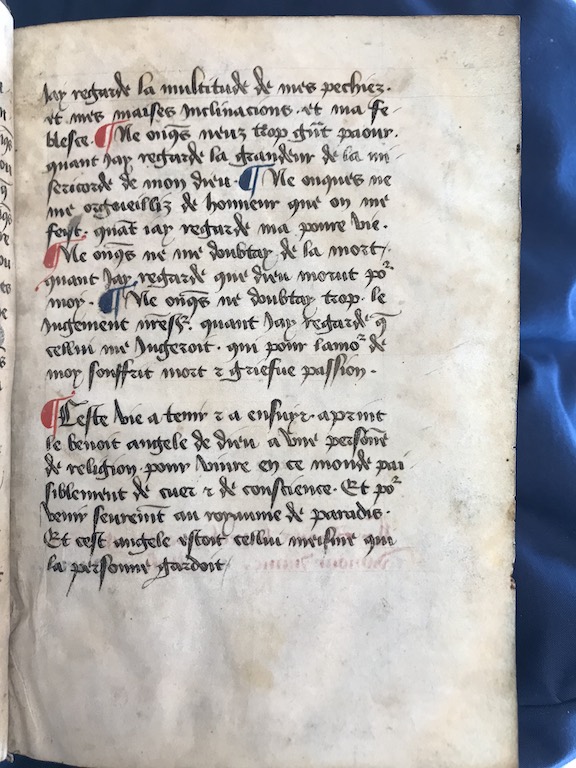 Jay regarde la multitude de mes pechiez.
et mes maises Inclinacions. et ma fe-
blesce. ¶ Ne onq̃s neuz trop gñt paour.
quant Jay regarde la grandeur de la mi-
sericorde de mon dieu. ¶ Ne onques ne
me orgueilliz de honneur que on me
feist. quãt iay regarde ma poure vie.
¶ Ne onq̃s ne me doubtay de la mort,
quant Jay regarde que dieu morut poʳ
moy. ¶ Ne onq̃s ne doubtay trop. le
Jugement quant Jay regarde q̃
cellui me Jugeroit. qui pour lamoʳ de
moy souffrit mort ⁊ griefue passion.
¶ Ceste vie a tenir ⁊ a ensuyr. aprint
le benoit angele de dieu a vne personẽ
de religion. pour viure en ce monde pai
siblement de cuer ⁊ de conscience. Et poʳ
venir seuremẽt au royaume de paradis.
Et cest angele estoit cellui meisme qui
la personne gardoit